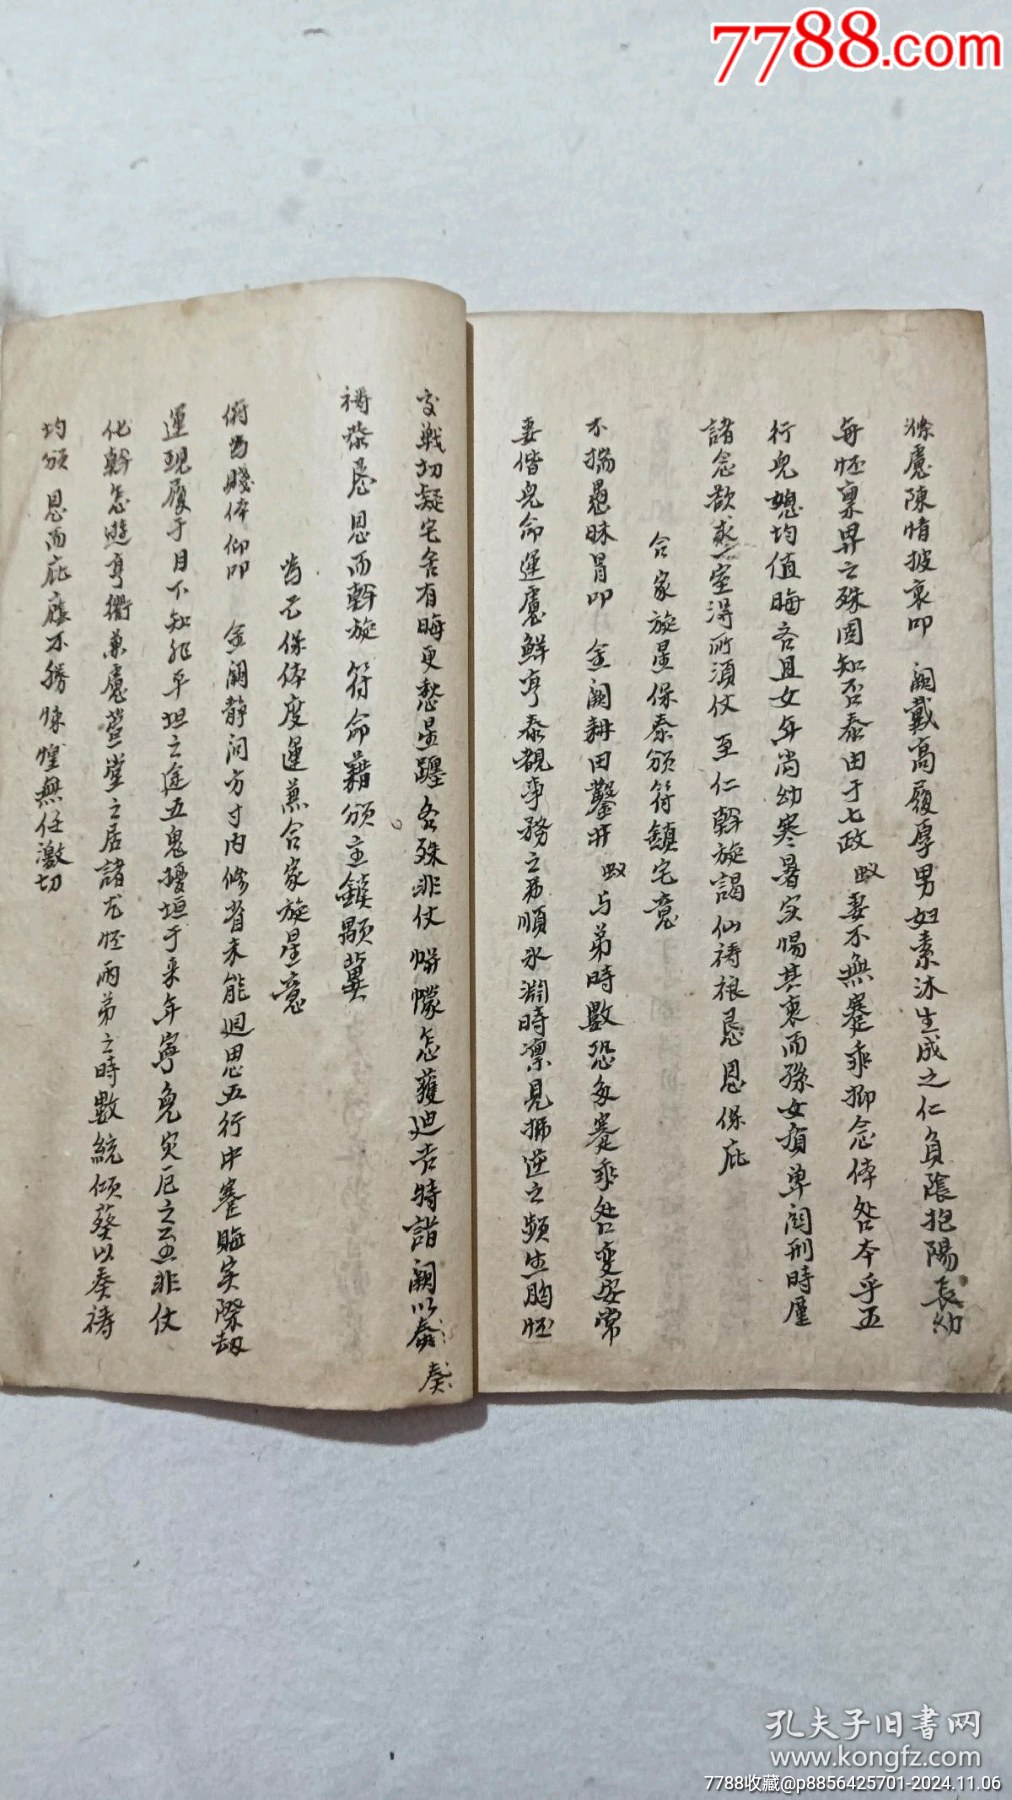 7788.com
滌慮陳情披衷叩 闕戴高履厚男妇素沐生成之仁負陰抱陽長幼
每怪稟畀之殊固知否泰由于七政 蚁妻不無蹇乖抑念体咎本乎五
行兒媳均值晦吝且女年尚幼寒暑实惕其衷而孫女須單関刑時厪
諸念欲室得所須仗 至仁斡旋謁仙禱祿恳恩保庇
合家旋星保泰頒符鎮宅意
不揣愚昧冒叩 金闕耕田鑿井 蚁与弟時數恐多蹇乖咎变安常
妻偕兒命運慮鮮亨泰覩事務之弗順氷淵時凛見拂逆之頻生胸怪
交戦切疑宅舍有晦更愁星躔各殊非仗帡幪怎獲迪吉特詣闕以奏
禱恭恳 恩而斡旋 符命藉頒主鎮顒冀
为己保体度運兼合家旋星意
俯 賤体仰叩 金闕静问方寸内修省未能廻思五行中蹇晦实際劫
運現履于目下知非平坦之途五鬼擾垣于来年寧免灾厄之 非仗
化斡怎遊亨衢兼慮萱堂之居諸尤怪兩弟之時數統傾葵以奏禱
均頒 恩而庇庥不勝悚惶無任激切
孔夫子旧書网
www.kongfz.com
7788收藏@p8856425701-2024.11.06